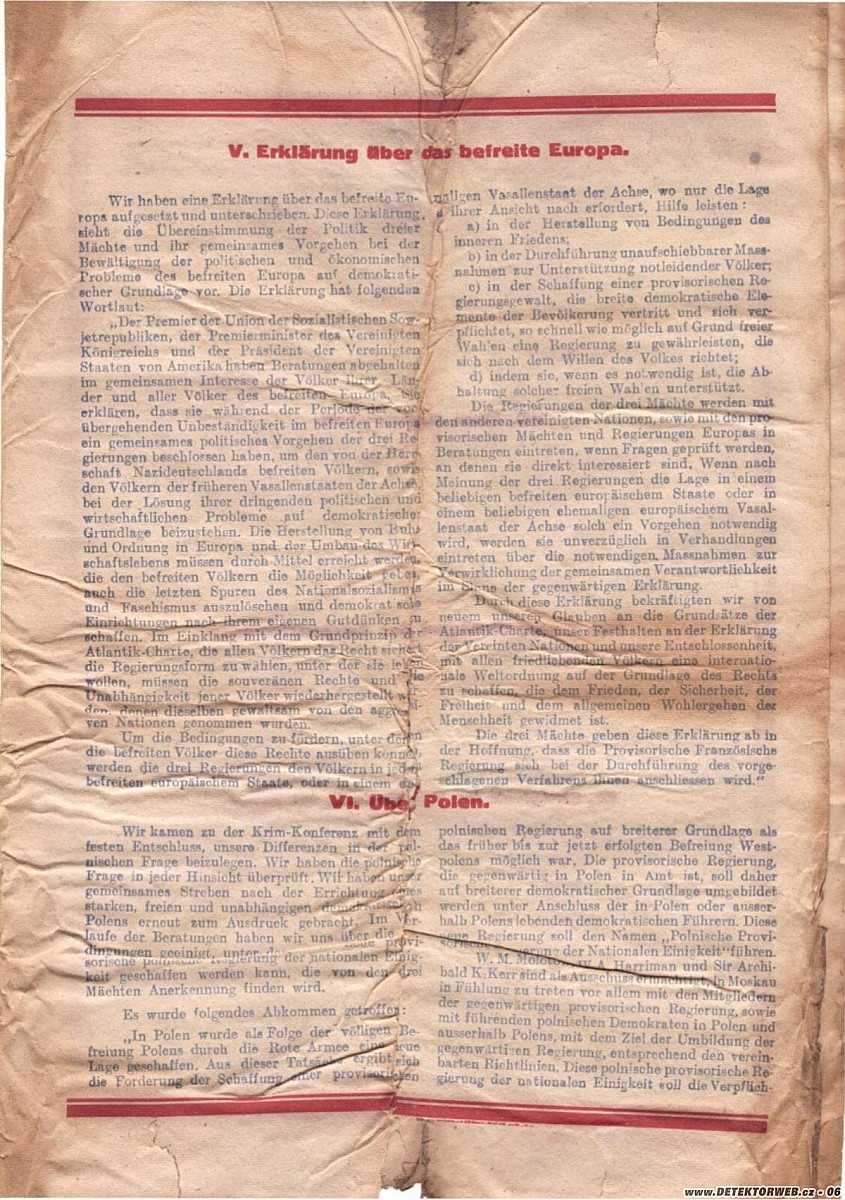 V. Erklärung über das befreite Europa.
Wir haben eine Erklärung über das befreite Eu-
ropa aufgesetzt und unterschrieben. Diese Erklärung
sieht die Übereinstimmung der Politik dreier
Mächte und ihr gemeinsames Vorgehen bei der
Bewältigung der politischen und ökonomischen
Probleme des befreiten Europa auf demokrati-
scher Grundlage vor. Die Erklärung hat folgenden
Wortlaut:
„Der Premier der Union der Sozialistischen Sow-
jetrepubliken, der Premierminister des Vereinigten
Königreichs und der Präsident der Vereinigten
Staaten von Amerika haben Beratungen abgehalten
im gemeinsamen Interesse der Völker ihrer Län-
der und aller Völker des befreiten Europa. Sie
erklären, dass sie während der Periode der vor-
übergehenden Unbeständigkeit im befreiten Europa
ein gemeinsames politisches Vorgehen der drei Re-
gierungen beschlossen haben, um den von der Herr-
schaft Nazideutschlands befreiten Völkern, sowie
den Völkern der früheren Vasallenstaaten der Achse,
bei der Lösung ihrer dringenden politischen und
wirtschaftlichen Probleme auf demokratischer
Grundlage beizustehen. Die Herstellung von Ruhe
und Ordnung in Europa und der Umbau des Wirt-
schaftslebens müssen durch Mittel erreicht werden,
die den befreiten Völkern die Möglichkeit geben,
auch die letzten Spuren des Nationalsozialismus
und Faschismus auszulöschen und demokratische
Einrichtungen nach ihrem eigenen Gutdünken zu
schaffen. Im Einklang mit dem Grundprinzip der
Atlantik-Charte, die allen Völkern das Recht sichert
die Regierungsform zu wählen, unter der sie leben
wollen, müssen die souveränen Rechte und die
Unabhängigkeit jener Völker wiederhergestellt wer-
den, denen dieselben gewaltsam von den aggressi-
ven Nationen genommen wurden.
Um die Bedingungen zu fördern, unter denen
die befreiten Völker diese Rechte ausüben können,
werden die drei Regierungen den Völkern in jedem
befreiten europäischem Staate, oder in einem
maligen Vasallenstaat der Achse, wo nur die Lage
ihrer Ansicht nach erfordert, Hilfe leisten:
a) in der Herstellung von Bedingungen des
inneren Friedens;
b) in der Durchführung unaufschiebbarer Mass-
nahmen zur Unterstützung notleidender Völker;
c) in der Schaffung einer provisorischen Re-
gierungsgewalt, die breite demokratische Ele-
mente der Bevölkerung vertritt und sich ver-
pflichtet, so schnell wie möglich auf Grund freier
Wahlen eine Regierung zu gewährleisten, die
sich nach dem Willen des Volkes richtet;
d) indem sie, wenn es notwendig ist, die Ab-
haltung solcher freien Wahlen unterstützt.
Die Regierungen der drei Mächte werden mit
den anderen vereinigten Nationen, sowie mit den pro-
visorischen Mächten und Regierungen Europas in
Beratungen eintreten, wenn Fragen geprüft werden,
an denen sie direkt interessiert sind. Wenn nach
Meinung der drei Regierungen die Lage in einem
beliebigen befreiten europäischem Staate oder in
einem beliebigen ehemaligen europäischem Vasal-
lenstaat der Achse solch ein Vorgehen notwendig
wird, werden sie unverzüglich in Verhandlungen
eintreten über die notwendigen Massnahmen zur
Verwirklichung der gemeinsamen Verantwortlichkeit
im Sinne der gegenwärtigen Erklärung.
Durch diese Erklärung bekräftigten wir von
neuem unseren Glauben an die Grundsätze der
Atlantik-Charte, unser Festhalten an der Erklärung
der Vereinten Nationen und unsere Entschlossenheit,
mit allen friedliebenden Völkern eine internatio-
nale Weltordnung auf der Grundlage des Rechts
zu schaffen, die dem Frieden, der Sicherheit, der
Freiheit und dem allgemeinen Wohlergehen der
Menschheit gewidmet ist.
Die drei Mächte geben diese Erklärung ab in
der Hoffnung, dass die Provisorische Französische
Regierung sich bei der Durchführung des vorge-
schlagenen Verfahrens ihnen anschliessen wird.“
VI. Über Polen.
Wir kamen zu der Krim-Konferenz mit dem
festen Entschluss, unsere Differenzen in der pol-
nischen Frage beizulegen. Wir haben die polnische
Frage in jeder Hinsicht überprüft. Wir haben unser
gemeinsames Streben nach der Errichtung eines
starken, freien und unabhängigen demokratischen
Polens erneut zum Ausdruck gebracht. Im Ver-
laufe der Beratungen haben wir uns über die
dingungen geeinigt, unter provi-
sorische polnische Regierung der nationalen Einig-
keit geschaffen werden kann, die von den drei
Mächten Anerkennung finden wird.
Es wurde folgendes Abkommen getroffen:
„In Polen wurde als Folge der völligen Be-
freiung Polens durch die Rote Armee eine neue
Lage geschaffen. Aus dieser Tatsache ergibt sich
die Forderung der Schaffung einer provisorischen
polnischen Regierung auf breiterer Grundlage als
das früher bis zur jetzt erfolgten Befreiung West-
polens möglich war. Die provisorische Regierung,
die gegenwärtig in Polen in Amt ist, soll daher
auf breiterer demokratischer Grundlage umgebildet
werden unter Anschluss der in Polen oder ausser-
halb Polens lebenden demokratischen Führern. Diese
neue Regierung soll den Namen „Polnische Provi-
sorische Regierung der Nationalen Einigkeit“ führen.
W. M. Molotow, W. A. Harriman und Sir Archi-
bald K. Kerr sind als Ausschuss ermächtigt, in Moskau
in Fühlung zu treten vor allem mit den Mitgliedern
der gegenwärtigen provisorischen Regierung, sowie
mit führenden polnischen Demokraten in Polen und
ausserhalb Polens, mit dem Ziel der Umbildung der
gegenwärtigen Regierung, entsprechend den verein-
barten Richtlinien. Diese polnische provisorische Re-
gierung der nationalen Einigkeit soll die Verpflich-
www.DETEKTORWEB.cz - 06